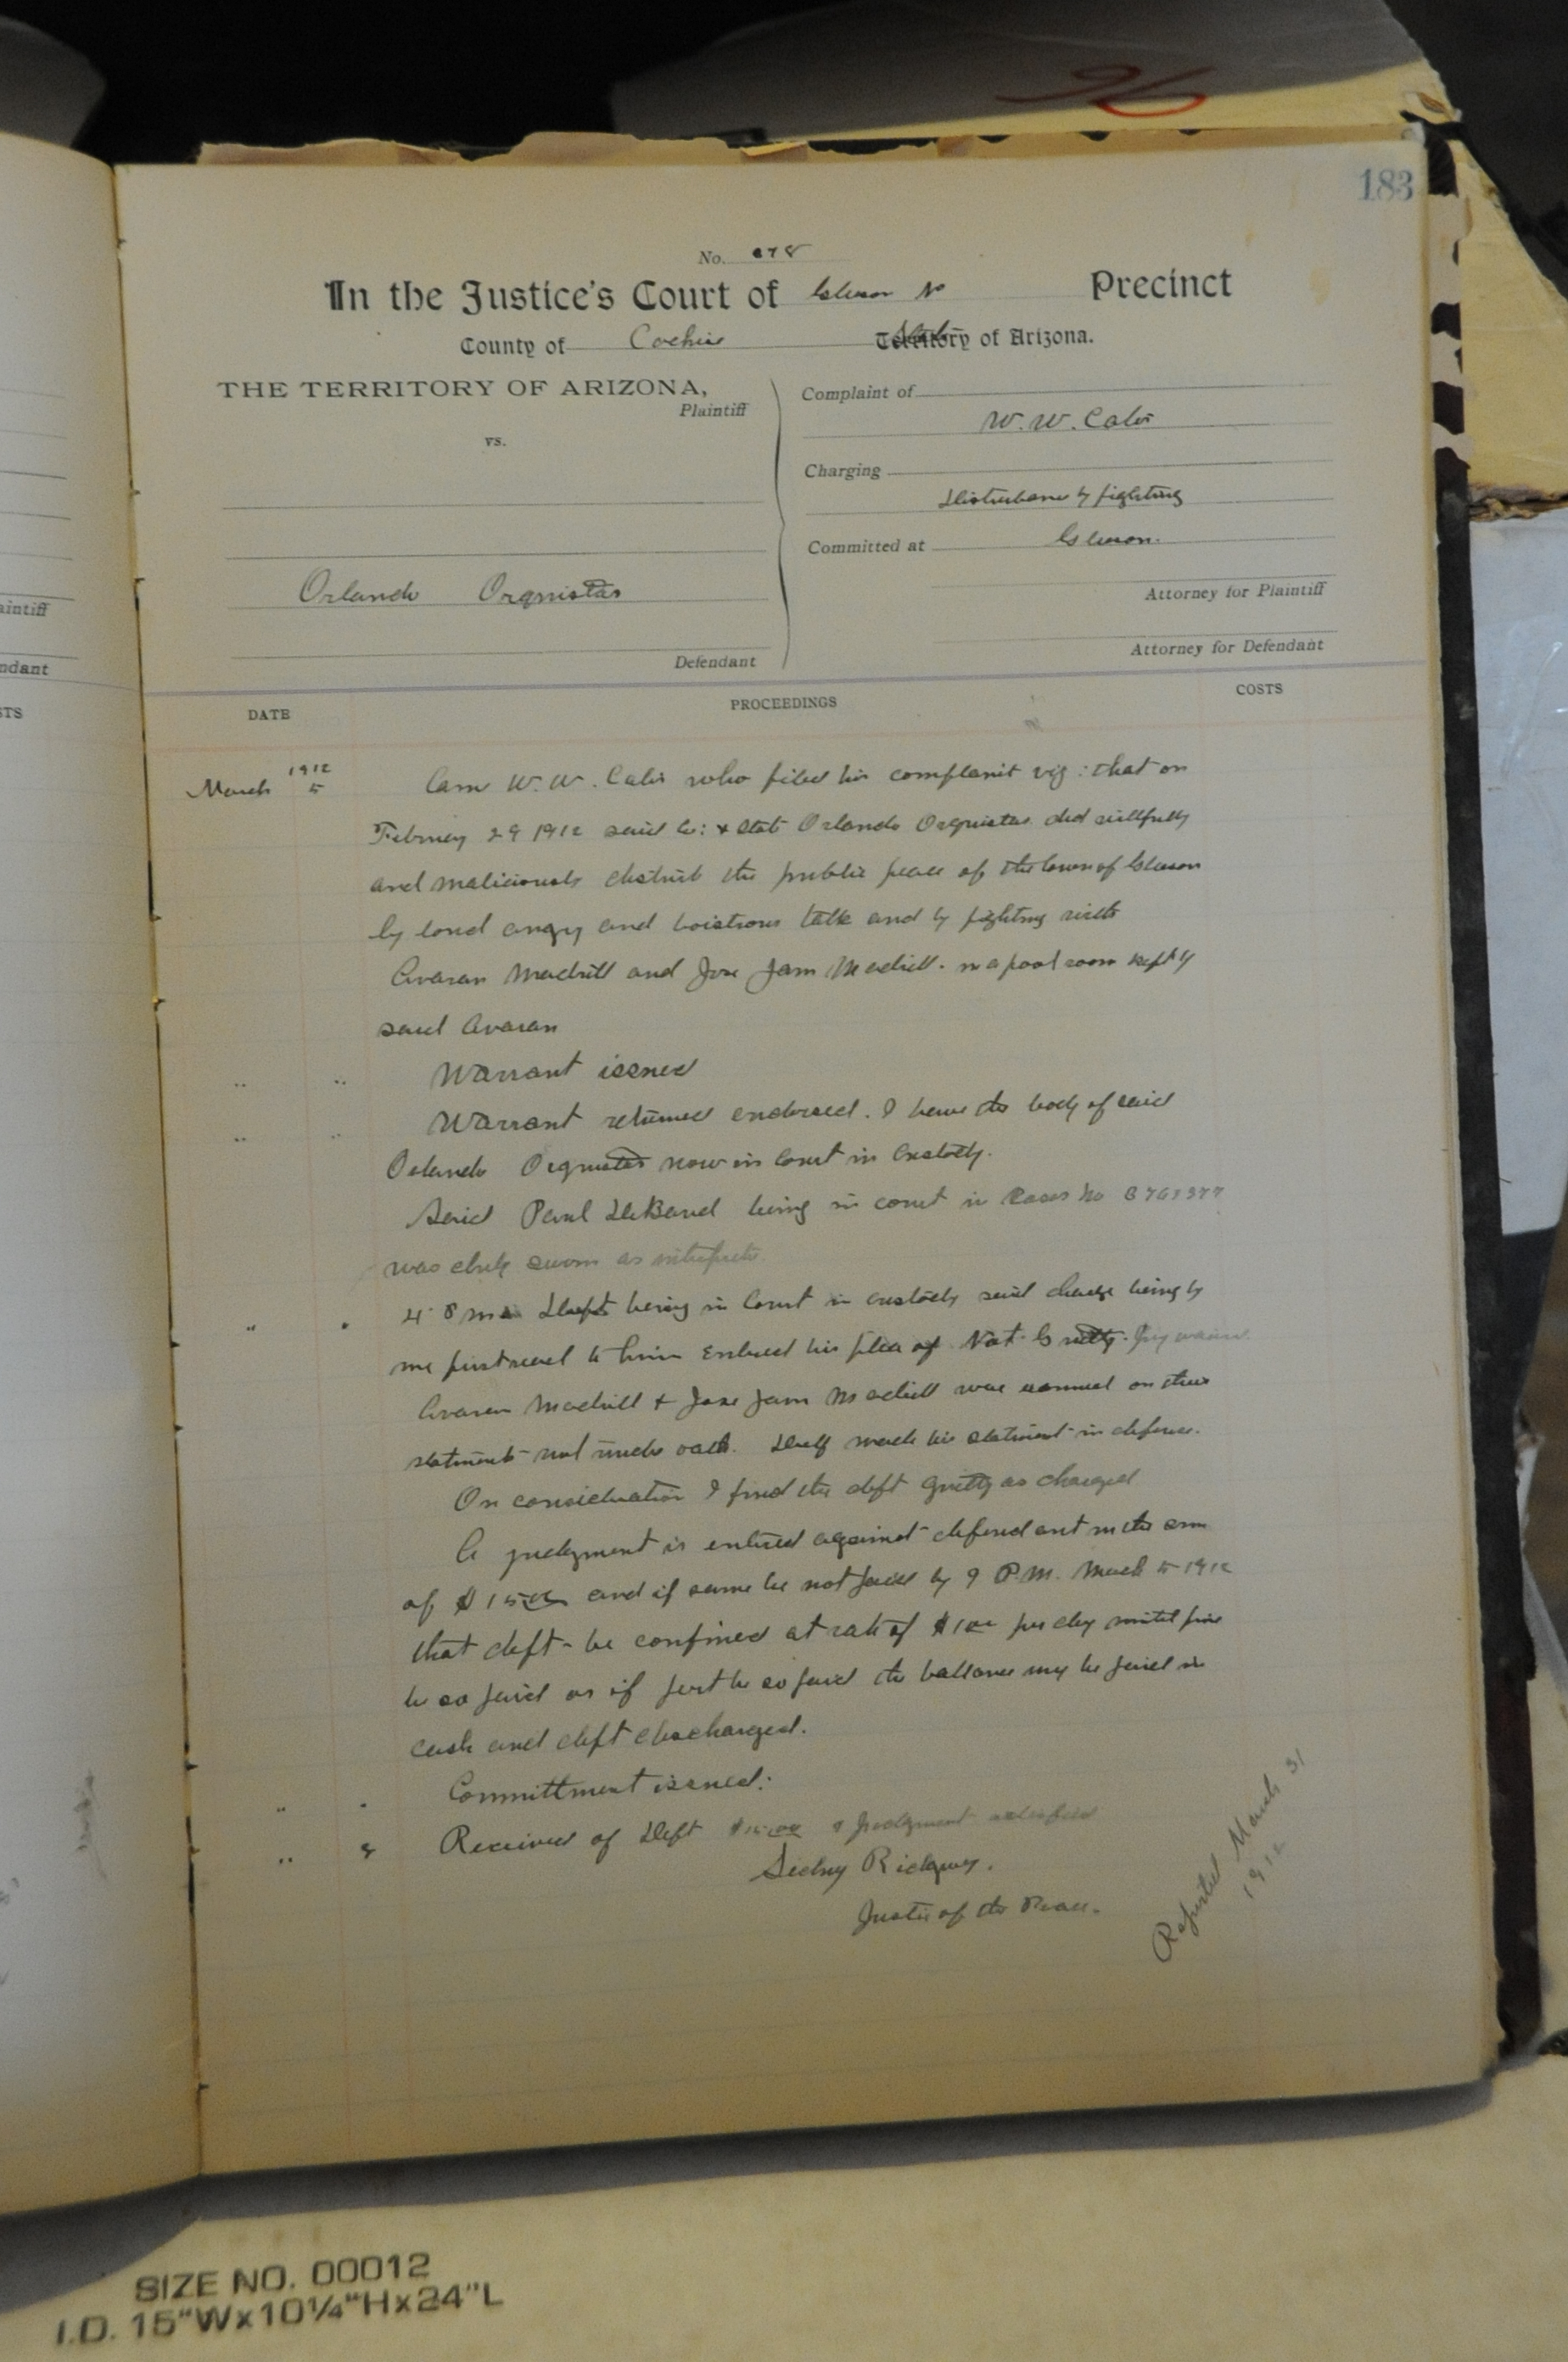 96
183
No. 378
In the Justice's Court of Gleeson No Precinct
County of Cochise State Territory of Arizona.
THE TERRITORY OF ARIZONA,
Plaintiff
vs.
Orlando Orquistas
Defendant
Complaint of
W. W. Cates
Charging
Disturbance by fighting
Committed at Gleeson.
Attorney for Plaintiff
Attorney for Defendant
aintiff
ndant
STS
DATE
PROCEEDINGS
COSTS
March 1912 5 Came W. W. Cates who filed his complaint viz: that on
February 29 1912 said Co: & State Orlando Orquistas did willfully
and maliciously disturb the public peace of the town of Gleeson
by loud angry and boistrous talk and by fighting with
Madrill and Jose Juan Madrill. in a pool room kept by
said
" " Warrant issued
" " Warrant returned endorsed. I have the body of said
Orlando Orquistas now in Court in Custody.
Said Paul DeBaud being in court in Cases No 376 & 377
was duly sworn as interpreter.
" " 4 P m Deft being in Court in custody said charge being by
me first read to him Entered his plea of Not Guilty. Jury waived.
Madrill & Jose Juan Madrill were examined on their
statements not under oath. Deft made his statement in defense.
On consideration I find the deft guilty as charged
A judgment is entered against defendant in the sum
of $15.00 and if same be not paid by 9 P.M. March 5 1912
that deft be confined at rate of $1.00 per day until fine
be so paid or if part be so paid the ballance may be paid in
cash and deft discharged.
" " Committment issued:
" 8 Received of Deft $15.00 & judgment satisfied
Sidney Ridgway.
Justice of the Peace.
Reported March 31
1912
SIZE NO. 00012
I.D. 15"Wx10¼"Hx24"L